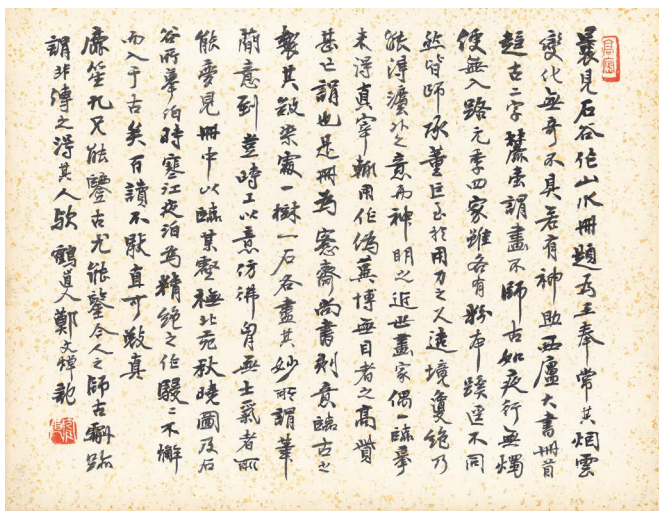 曩見石谷作山水冊題為王奉常其烟雲
變化無奇不具若有神助西廬大書冊首
趍古二字麓臺謂畫不師古如夜行無燭
便無入路元季四家雖各有粉本蹊逕不同
然皆師承董巨至於用力之久造境夐絕乃
能得濠外之意而神明之近世畫家偶一臨摹
未得真宰輒用作偽冀博無目者之高賞
甚亡謂也是冊為愙齋尚書刻意臨古之
製其皴染處一樹一石各盡其妙所謂筆
簡意到豈時工以意仿彿胷無士氣者所
能夢見冊中以臨某壑極北苑秋曉圖及石
谷所摹泊時寒江夜泊為精絕之作駸〻不懈
而入于古矣百讀不厭真可敚真
廉笙九兄能鑒古尤能鑒今人之師古斠跡
謂非傳之得其人歟鶴道人鄭文焯記